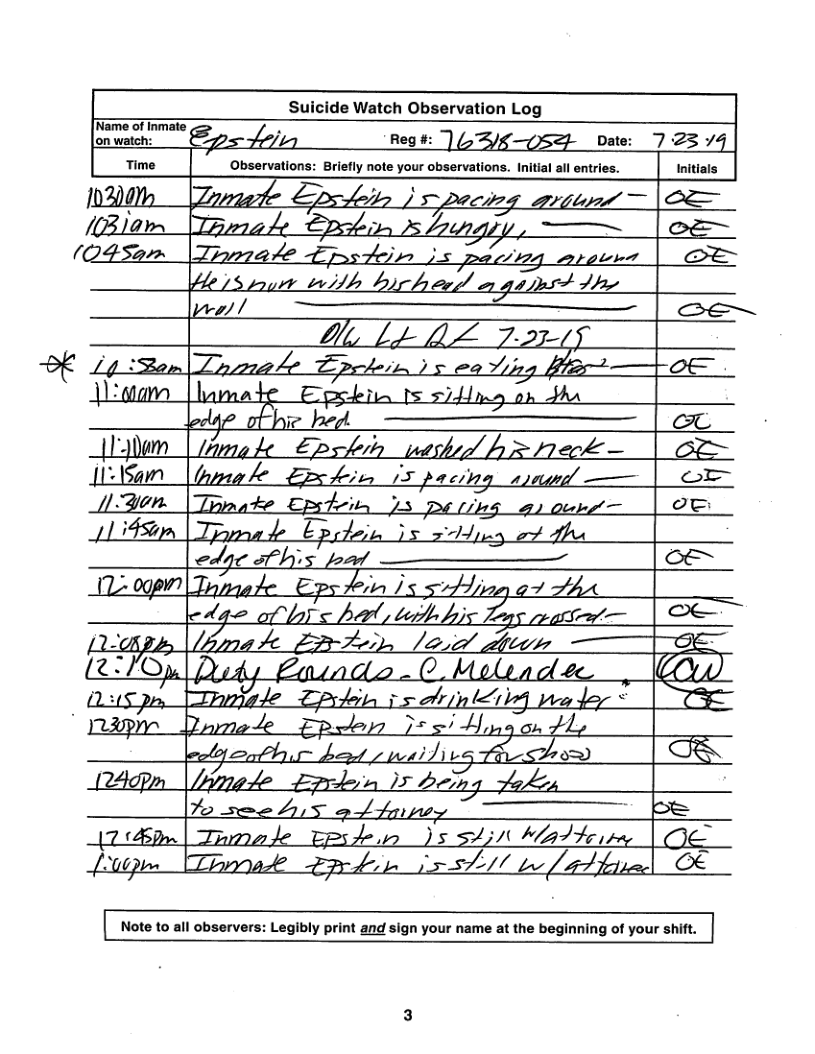 Suicide Watch Observation Log
Name of Inmate on watch: Epstein Reg #: 76318-054 Date: 7-23-19
Time Observations: Briefly note your observations. Initial all entries. Initials
1030am Inmate Epstein is pacing around — OE
1031am Inmate Epstein is hungry, — OE
1045am Inmate Epstein is pacing around OE
He is now with his head against the
wall — OE
7-23-19
10:58am Inmate Epstein is eating — OE
11:00am Inmate Epstein is sitting on the
edge of his bed. — OE
11:10am Inmate Epstein washed his neck — OE
11:15am Inmate Epstein is pacing around — OE
11:30am Inmate Epstein is pacing around — OE
11:45am Inmate Epstein is sitting at the
edge of his bed — OE
12:00pm Inmate Epstein is sitting at the
edge of his bed, with his legs crossed — OE
12:08pm Inmate Epstein laid down — OE
12:10pm Duty Rounds - C. Melendec
12:15pm Inmate Epstein is drinking water OE
1230pm Inmate Epstein is sitting on the
edge of his bed, waiting for OE
1240pm Inmate Epstein is being taken
to see his attorney — OE
12:45pm Inmate Epstein is still w/attorney OE
1:00pm Inmate Epstein is still w/ OE
Note to all observers: Legibly print and sign your name at the beginning of your shift.
3